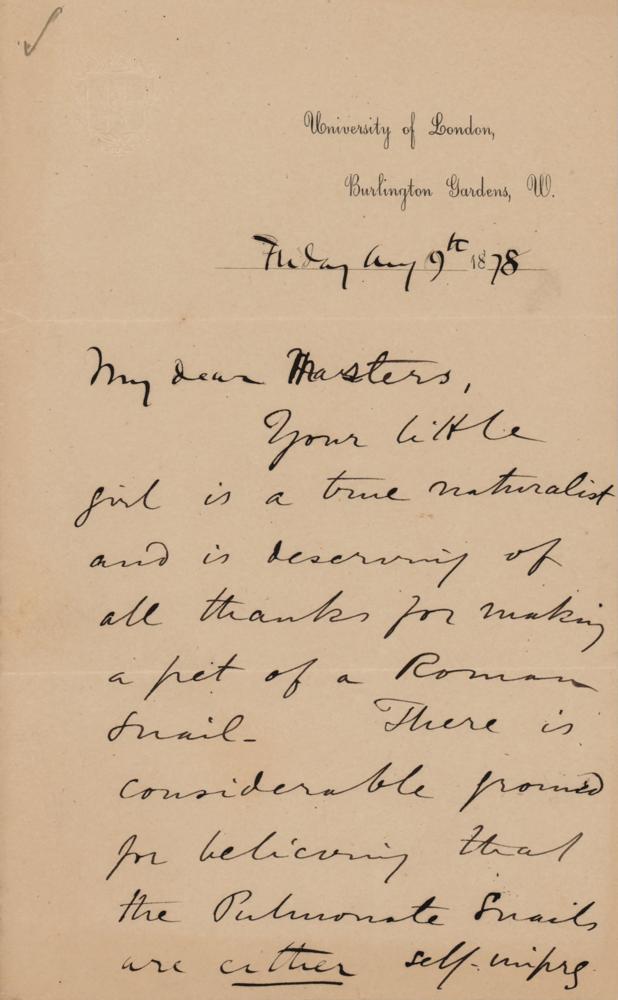 University of London,
Burlington Gardens, W.
Friday Aug 9th 1878
My dear Masters,
Your little
girl is a true naturalist
and is deserving of
all thanks for making
a pet of a Roman
Snail- There is
considerable ground
for believing that
the Pulmonate Snails
are either self-impreg